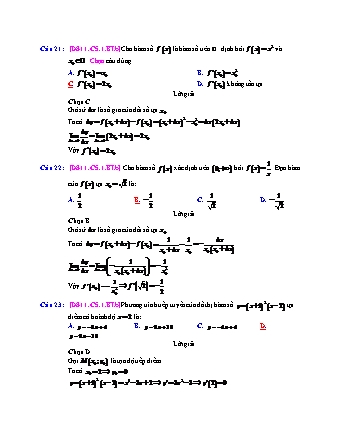 Câu 21: [DS11.C5.1.BT.b] Cho hàm số f(x) là hàm số trên ℝ định bởi f(x)=x² và
x₀∈ℝ. Chọn câu đúng
A. f'(x₀)=x₀. B. f'(x₀)=x₀².
C. f'(x₀)=2x₀. D. f'(x₀) không tồn tại.
Lời giải
Chọn C
Giả sử Δx là số gia của đối số tại x₀.
Ta có Δy=f(x₀+Δx)-f(x₀)=(x₀+Δx)²-x₀²=Δx(2x₀+Δx)
lim Δy/Δx = lim (2x₀+Δx)=2x₀
Vậy f'(x₀)=2x₀.
Câu 22: [DS11.C5.1.BT.b] Cho hàm số f(x) xác định trên (0;+∞) bởi f(x)=1/x. Đạo hàm
của f(x) tại x₀=√2 là:
A. 1/2. B. -1/2. C. 1/√2. D. -1/√2.
Lời giải
Chọn B
Giả sử Δx là số gia của đối số tại x₀.
Ta có Δy=f(x₀+Δx)-f(x₀)=1/(x₀+Δx)-1/x₀=-Δx/(x₀(x₀+Δx))
lim Δy/Δx = lim (-1/(x₀(x₀+Δx)))=-1/x₀²
Vậy f'(x₀)=-1/x₀² ⇒ f'(√2)=-1/2.
Câu 23: [DS11.C5.1.BT.b] Phương trình tiếp tuyến của đồ thị hàm số y=(x+1)²(x-2) tại
điểm có hoành độ x=2 là:
Lời giải
Chọn D
Gọi M(x₀;y₀) là tọa độ tiếp điểm.
Ta có x₀=2⇒y₀=0
y=(x+1)²(x-2)=x³-3x-2⇒y'=3x²-3⇒y'(2)=9